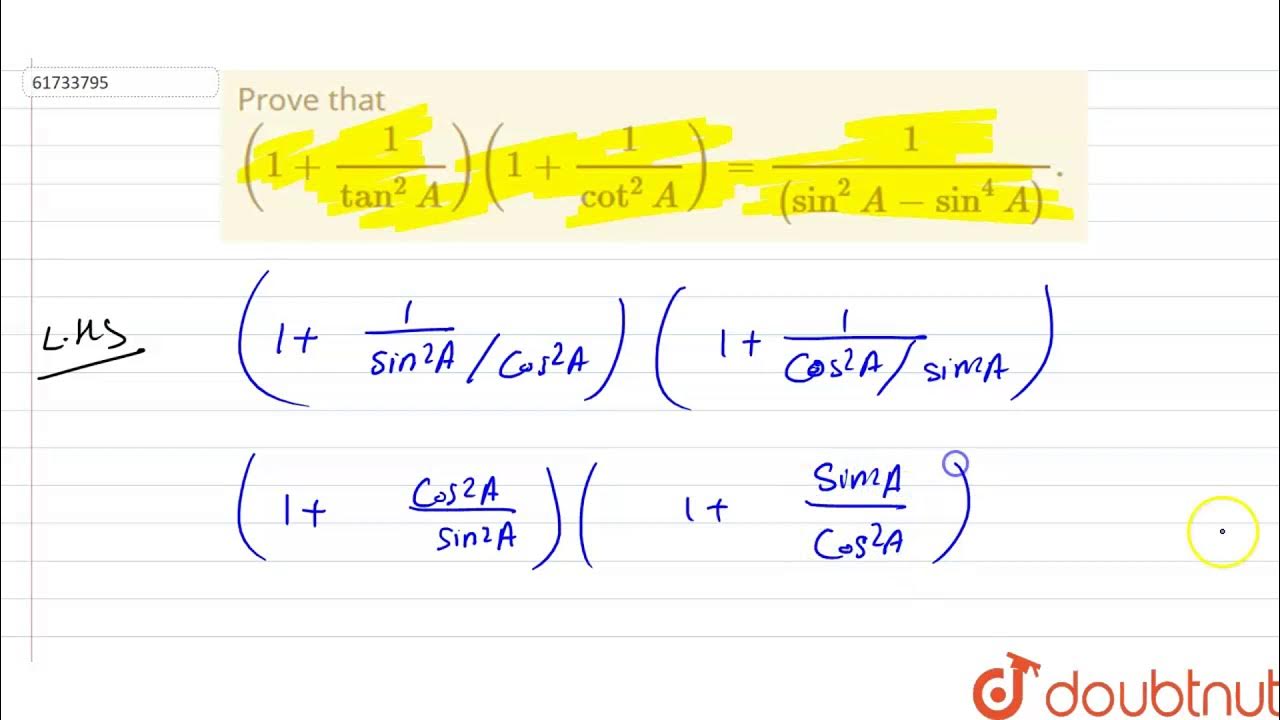 61733795
Prove that
(1 + 1/tan² A)(1 + 1/cot² A) = 1/(sin² A − sin⁴ A).
L.HS (1 + 1/sin²A/cos²A)(1 + 1/cos²A/sin²A)
(1 + cos²A/sin²A)(1 + sin²A/cos²A)
doubtnut